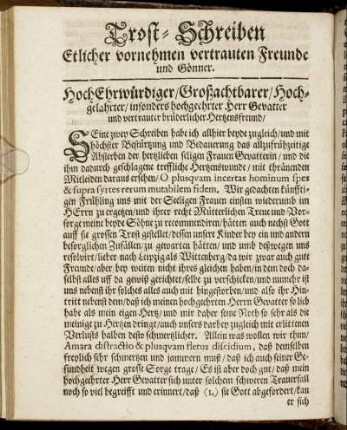 Trost-Schreiben
Etlicher vornehmen vertrauten Freunde
und Gönner.
HochEhrwürdiger/Großachtbarer/Hoch-
gelahrter/insonders hochgeehrter Herr Gevatter
und vertrauter brüderlicher Hertzensfreund/
SEine zwey Schreiben habe ich allhier beyde zugleich/und mit
höchster Bestürtzung und Bedauerung das allzufrühzeitige
Absterben der hertzlieben seligen Frauen Gevatterin/und die
ihm dadurch geschlagene treffliche Hertzenswunde/mit thränenden
Mitleiden daraus ersehen/O plusquam incertas hominum spes
& supra syrtes rerum mutabilem fidem. Wir gedachten künffti-
gen Frühling uns mit der Seeligen Frauen einsten wiederumb im
HErrn zu ergetzen/und ihrer recht Mütterlichen Treu und Vor-
sorge meine beyde Söhne zu recommendiren/hätten auch nechst Gott
auff sie grossen Trost gestellet/dessen unsere Kinder bey ein und andern
besorglichen Zufällen/zu gewarten hätten/und umb deßwegen uns
resolviret/lieber nach Leipzig als Wittenberg/da wir zwar auch gute
Freunde/aber bey weiten nicht ihres gleichen haben/in dem doch da-
selbst alles uff da gewiß gerichtet/selbe zu verschicken/und nunmehr ist
uns nebenst ihr solches alles auch mit hingestorben/und also ihr Hin-
tritt nebenst dem/daß ich meinen hochgeehrten Herrn Gevatter so lieb
habe als mein eigen Hertz/und mir daher seine Noth so sehr als die
meinige zu Hertzen dringt/auch unsers darbey zugleich mit erlittenen
Verlusts halben desto schmertzlicher. Allein was wollen wir thun/
Amara distractio & plusquam fletus discidium, daß demselben
freylich sehr schmertzen und jammern muß/daß ich auch seiner Ge-
sundheit wegen grosse Sorge trage/Es ist aber doch gut/daß mein
hochgeehrter Herr Gevatter sich unter solchem schweren Trauerfall
noch so viel begreifft und erinnert/daß (1.) sie Gott abgefordert/kan
er sich